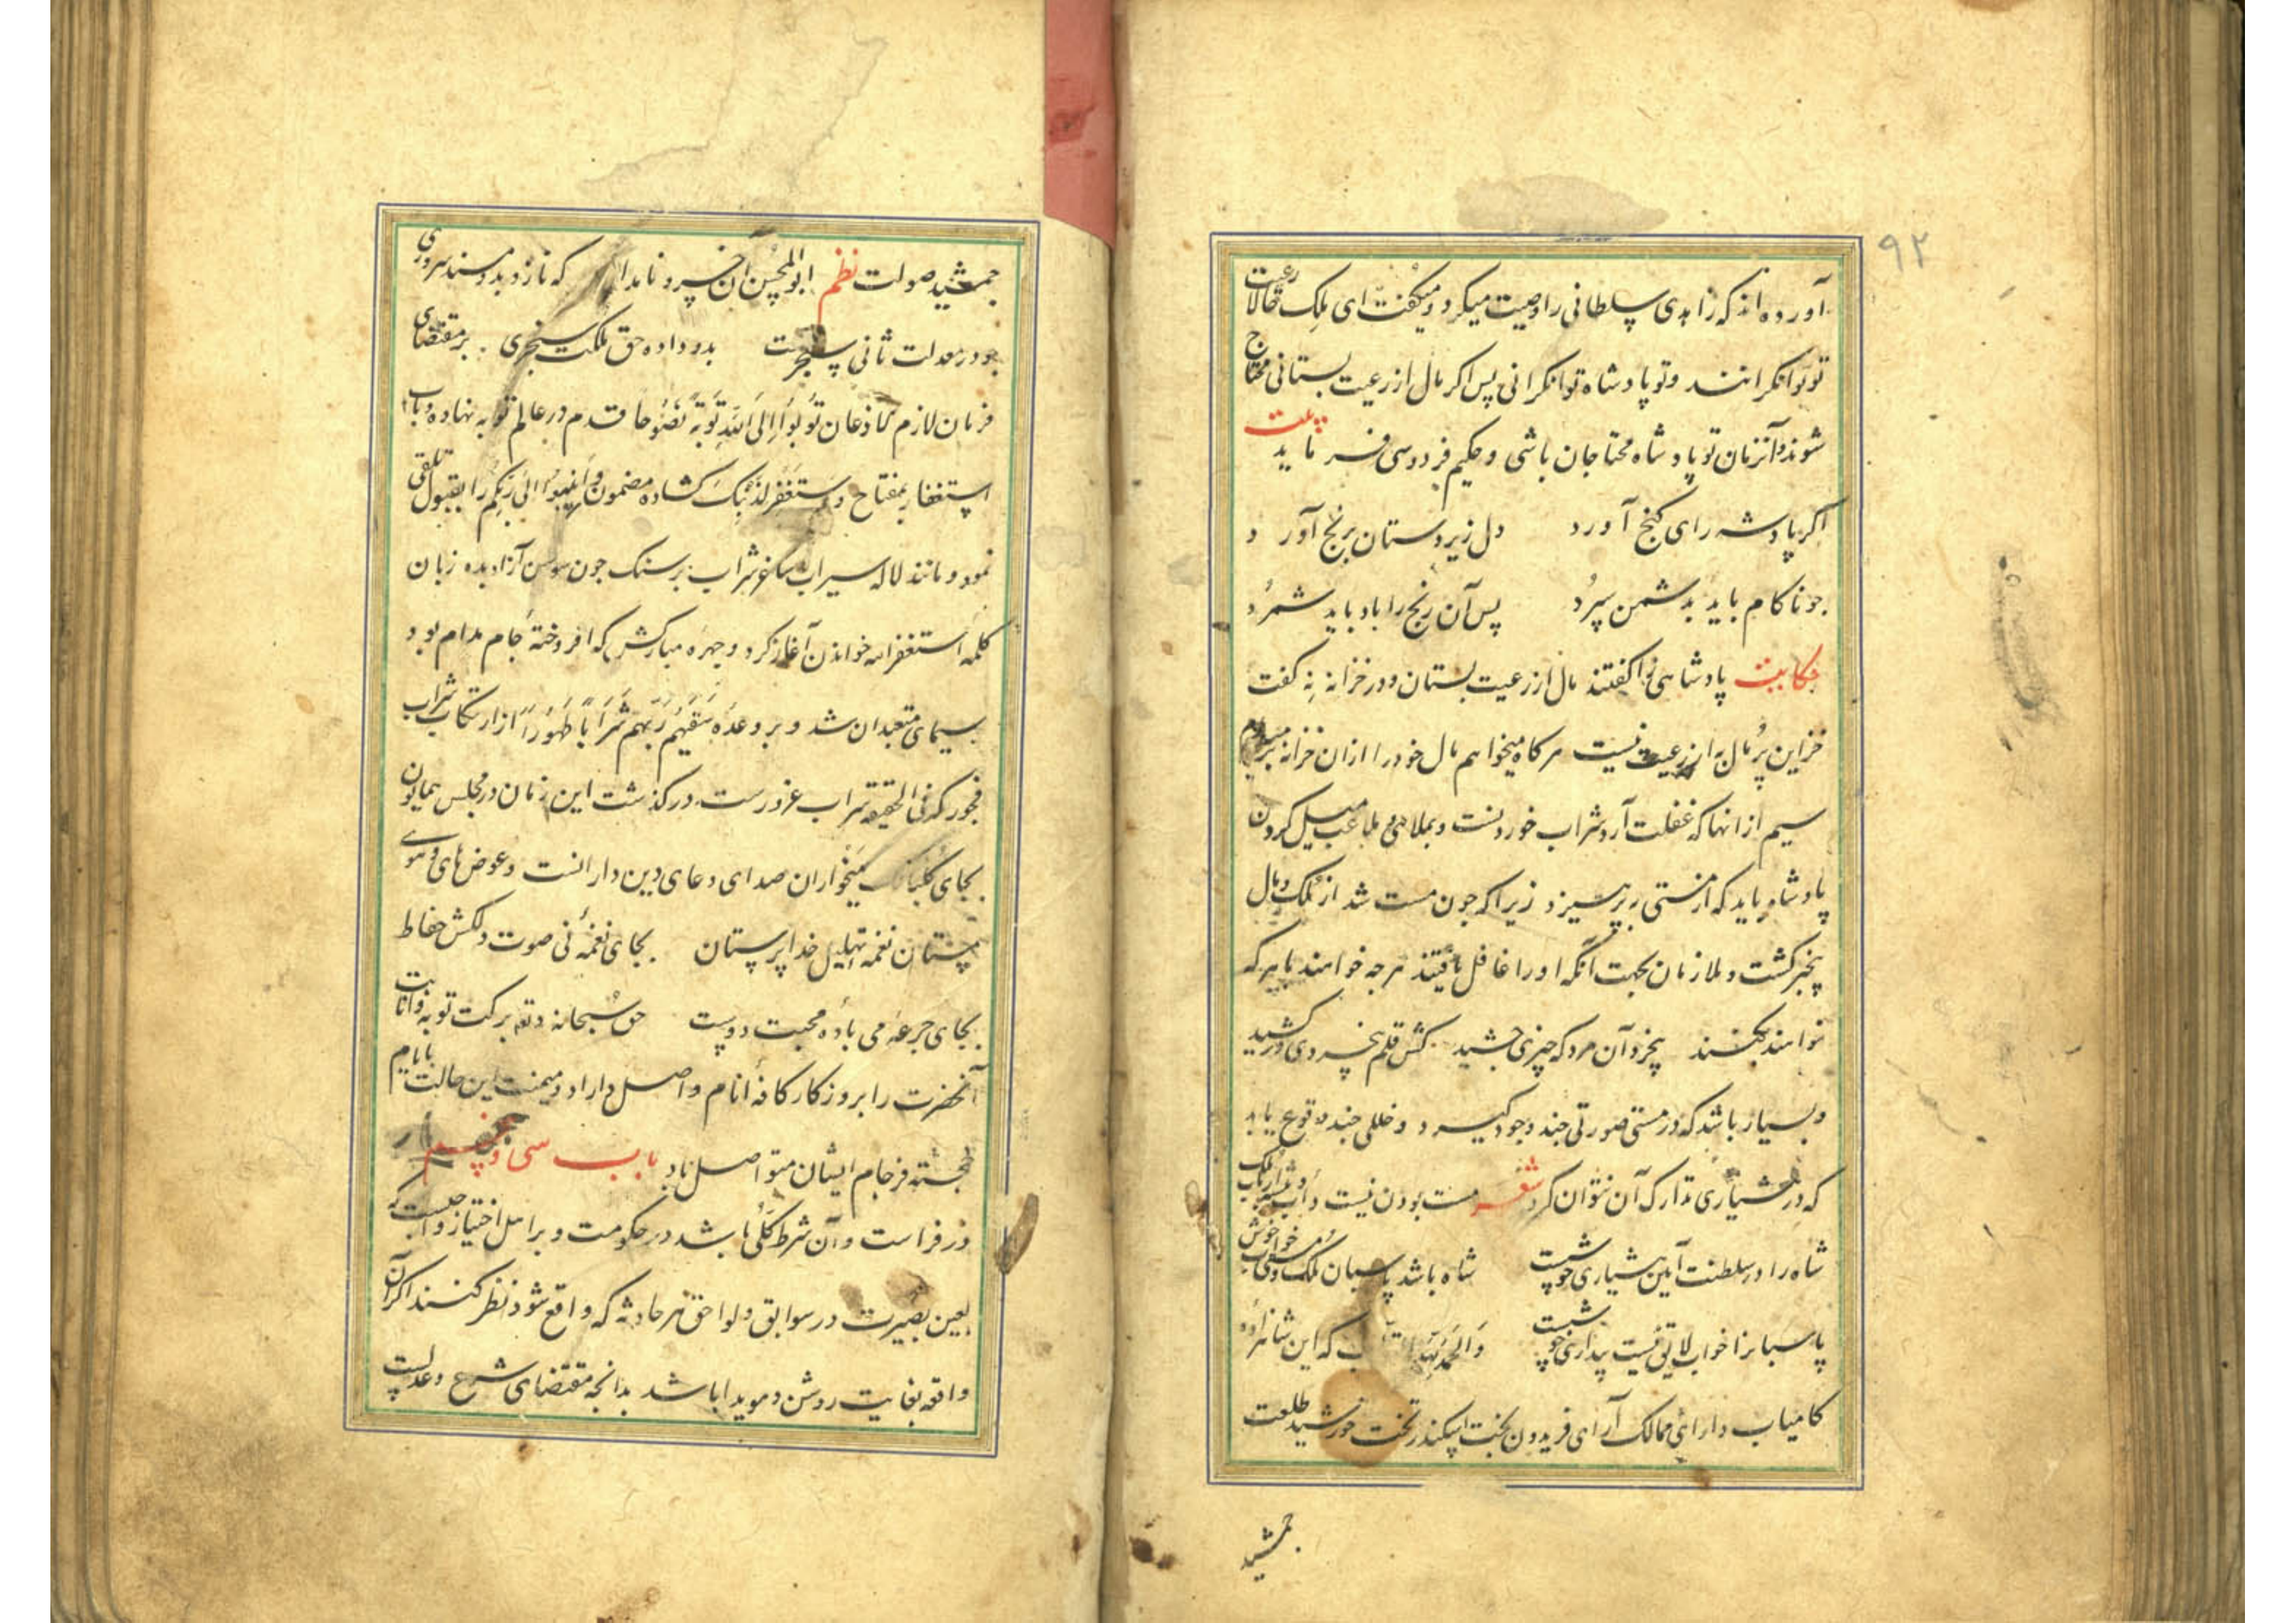 ۹۲
آورده‌اند که زاهدی سلطانی را وصیت میکرد و میکفت ای ملک رعیت حالا
تو توانکرانند و تو پادشاه توانکرانی پس اکر مال از رعیت بستانی محتاج
شوند و آنزمان تو پادشاه محتاجان باشی و حکیم فردوسی فرماید بیت
اکر پادشه رای کنج آورد دل زیردستان برنج آورد
جو ناکام باید بدشمن سپرد پس آن رنج را باد باید شمرد
حکایت پادشاهی را کفتند مال از رعیت بستان و در خزانه نه کفت
خزاین پر مال به از رعیت نیست هرکاه میخواهم مال خود را ازان خزانه بر میدارم
سیم از انها که غفلت آرد شراب خوردنست و بملاهی و ملاعب میل کردن
پادشاه باید که از مستی بپرهیزد زیرا که جون مست شد از ملک و مال
بیخبر کشت و ملازمان بجهت آنکه او را غافل یافتند هرجه خواهند با هر که
خواهند بکنند بیخرد آن مرد که جیزی جشید کش قلم بیخردی در کشید
و بسیار باشد که در مستی صورتی جند وجود کیرد و خللی جند وقوع یابد
که در هشیاری تدارک آن نتوان کرد شعر مست بودن نیست
شاه را در سلطنت آیین هشیاری خوشست شاه باشد پاسبان ملک و خوش
پاسبانرا خواب لایق نیست بیداری خوشست والحمد لله که این شاهزاده
کامیاب دارای ممالک آرای فریدون بخت اسکندر تخت خورشید طلعت
جمشید
جمشید صولت نظم ابوالمحسن آن خسرو نامدار که نازد بدو مسند سروری
جو در معدلت ثانی سنجرست بدو داده حق ملکت سنجری بر مقتضای
فرمان لازم الاذعان تُوبُوا اِلَی اللهِ تَوبَةً نَصُوحا قدم در عالم توبه نهاده و باب
استغفار بمفتاح وَستَغفِر لِذَنبِکَ کشاده مضمون وَاَنِیبُوا اِلی رَبِّکُم را بقبول تلقی
نمود و مانند لاله سیراب ساغر شراب بر سنک جون سوسن آزاد بده زبان
کلمه استغفرالله خواندن آغاز کرد و جهره مبارکش که افروختهٔ جام مدام بود
سیمای متعبدان شد و بر وعده سَقَیهُم رَبُّهُم شَرَابًا طَهُورًا از ارتکاب شراب
فجور که فی الحقیقه سراب غرورست در کذشت این زمان در مجلس همایون
بجای کلبانک میخواران صدای دعای دین دارانست و عوض های و هوی
مستان نغمه تهلیل خداپرستان بجای نغمهٔ نی صوت دلکش حفاظ
بجای جرعه می باده محبت دوست حق سبحانه و تع برکت توبه و انابت
آنحضرت را بروزکار کافهٔ انام واصل داراد و میمنت این حالت بایام
خجسته فرجام ایشان متواصل باد باب سی و پنجم
در فراست و آن شرط کلی باشد در حکومت و بر اهل اختیار واجبست که
بعین بصیرت در سوابق و لواحق هر حادثه که واقع شود نظر کنند اکر آن
واقعه بغایت روشن و هویدا باشد بدانجه مقتضای شرع و عدلست